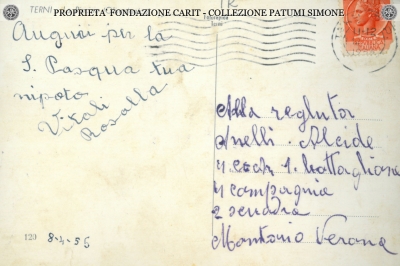 PROPRIETÀ FONDAZIONE CARIT - COLLEZIONE PATUMI SIMONE
TERNI
Auguri per la
S. Pasqua tua
nipote
Vitali
Rosalla
120
8-4-55
Alla regluta
Anelli Alcide
1. battaglione
4 compagnia
2 scuadra
Montorio Verona